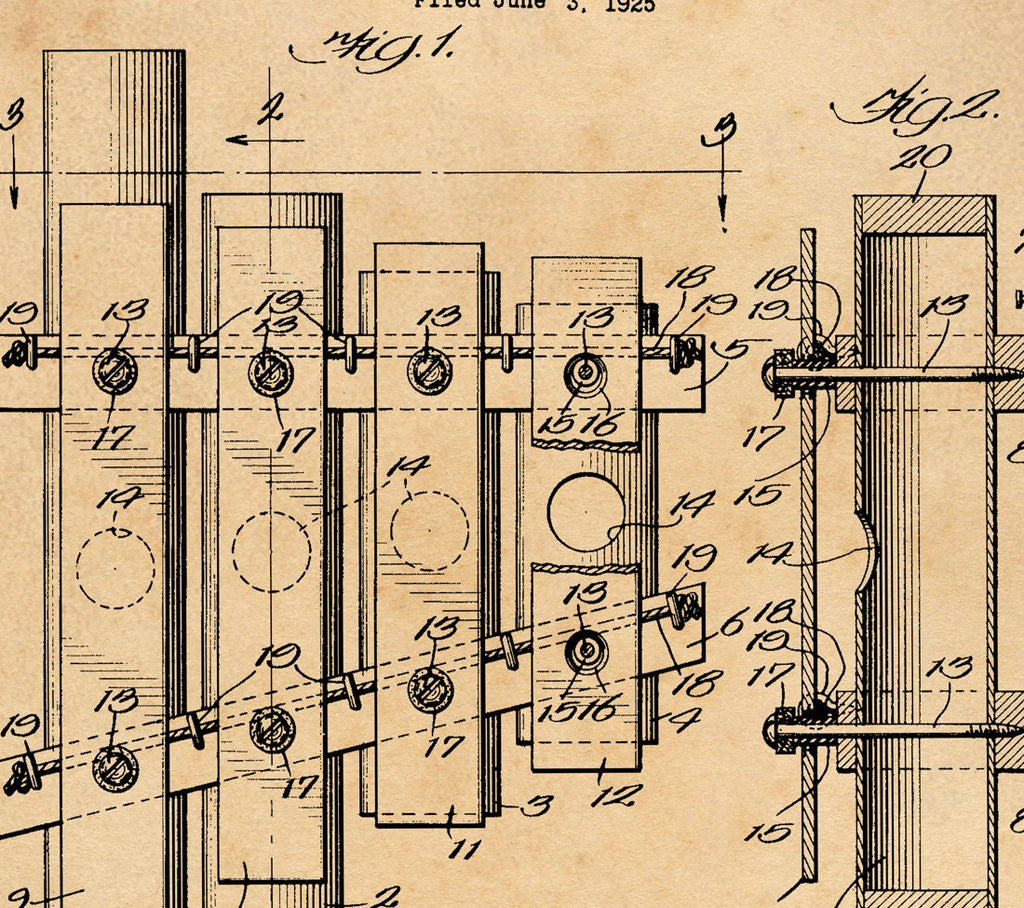 Filed June 3, 1925
Fig. 1.
Fig. 2.
3
2
3
20
19
13
19
13
13
13
18
19
5
18
19
13
17
17
15
16
17
15
14
14
14
14
19
18
19
17
13
13
13
19
6
19
13
15
16
18
4
17
17
12
3
11
15
9
2